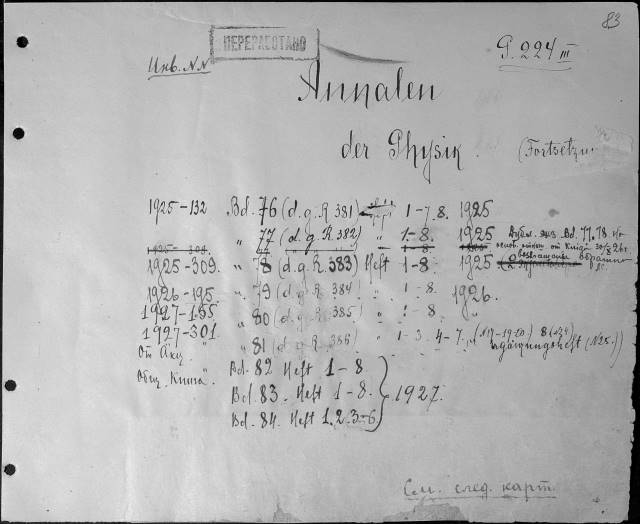 83
ПЕРЕРАБОТАНО
Инв. N.N
P. 224 III
Annalen
der Physik. (Fortsetzun
1925-132 Bd. 76 (d. g. R. 381) Heft 1-7. 8. 1925
" 77 (d. g. R. 382) " 1-8. 1925 Дубл. экз. Bd. 77, 78
1925-309.
1925-309. " 78 (d. g. R. 383) Heft 1-8. 1925
1926-195 " 79 (d. g. R. 384) " 1-8. 1926.
1927-155 " 80 (d. g. R. 385) " 1-8.
1927-301 " 81 (d. g. R. 386) " 1-3. 4-7.
От Акц. Bd. 82 Heft 1-8
Общ. "Книга". Bd. 83. Heft 1-8. 1927.
Bd. 84. Heft 1. 2. 3-6
См. след. карт.